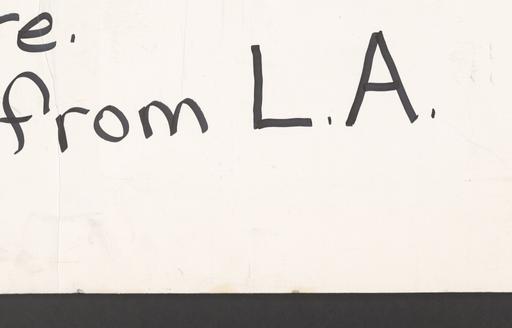 re.
from L.A.